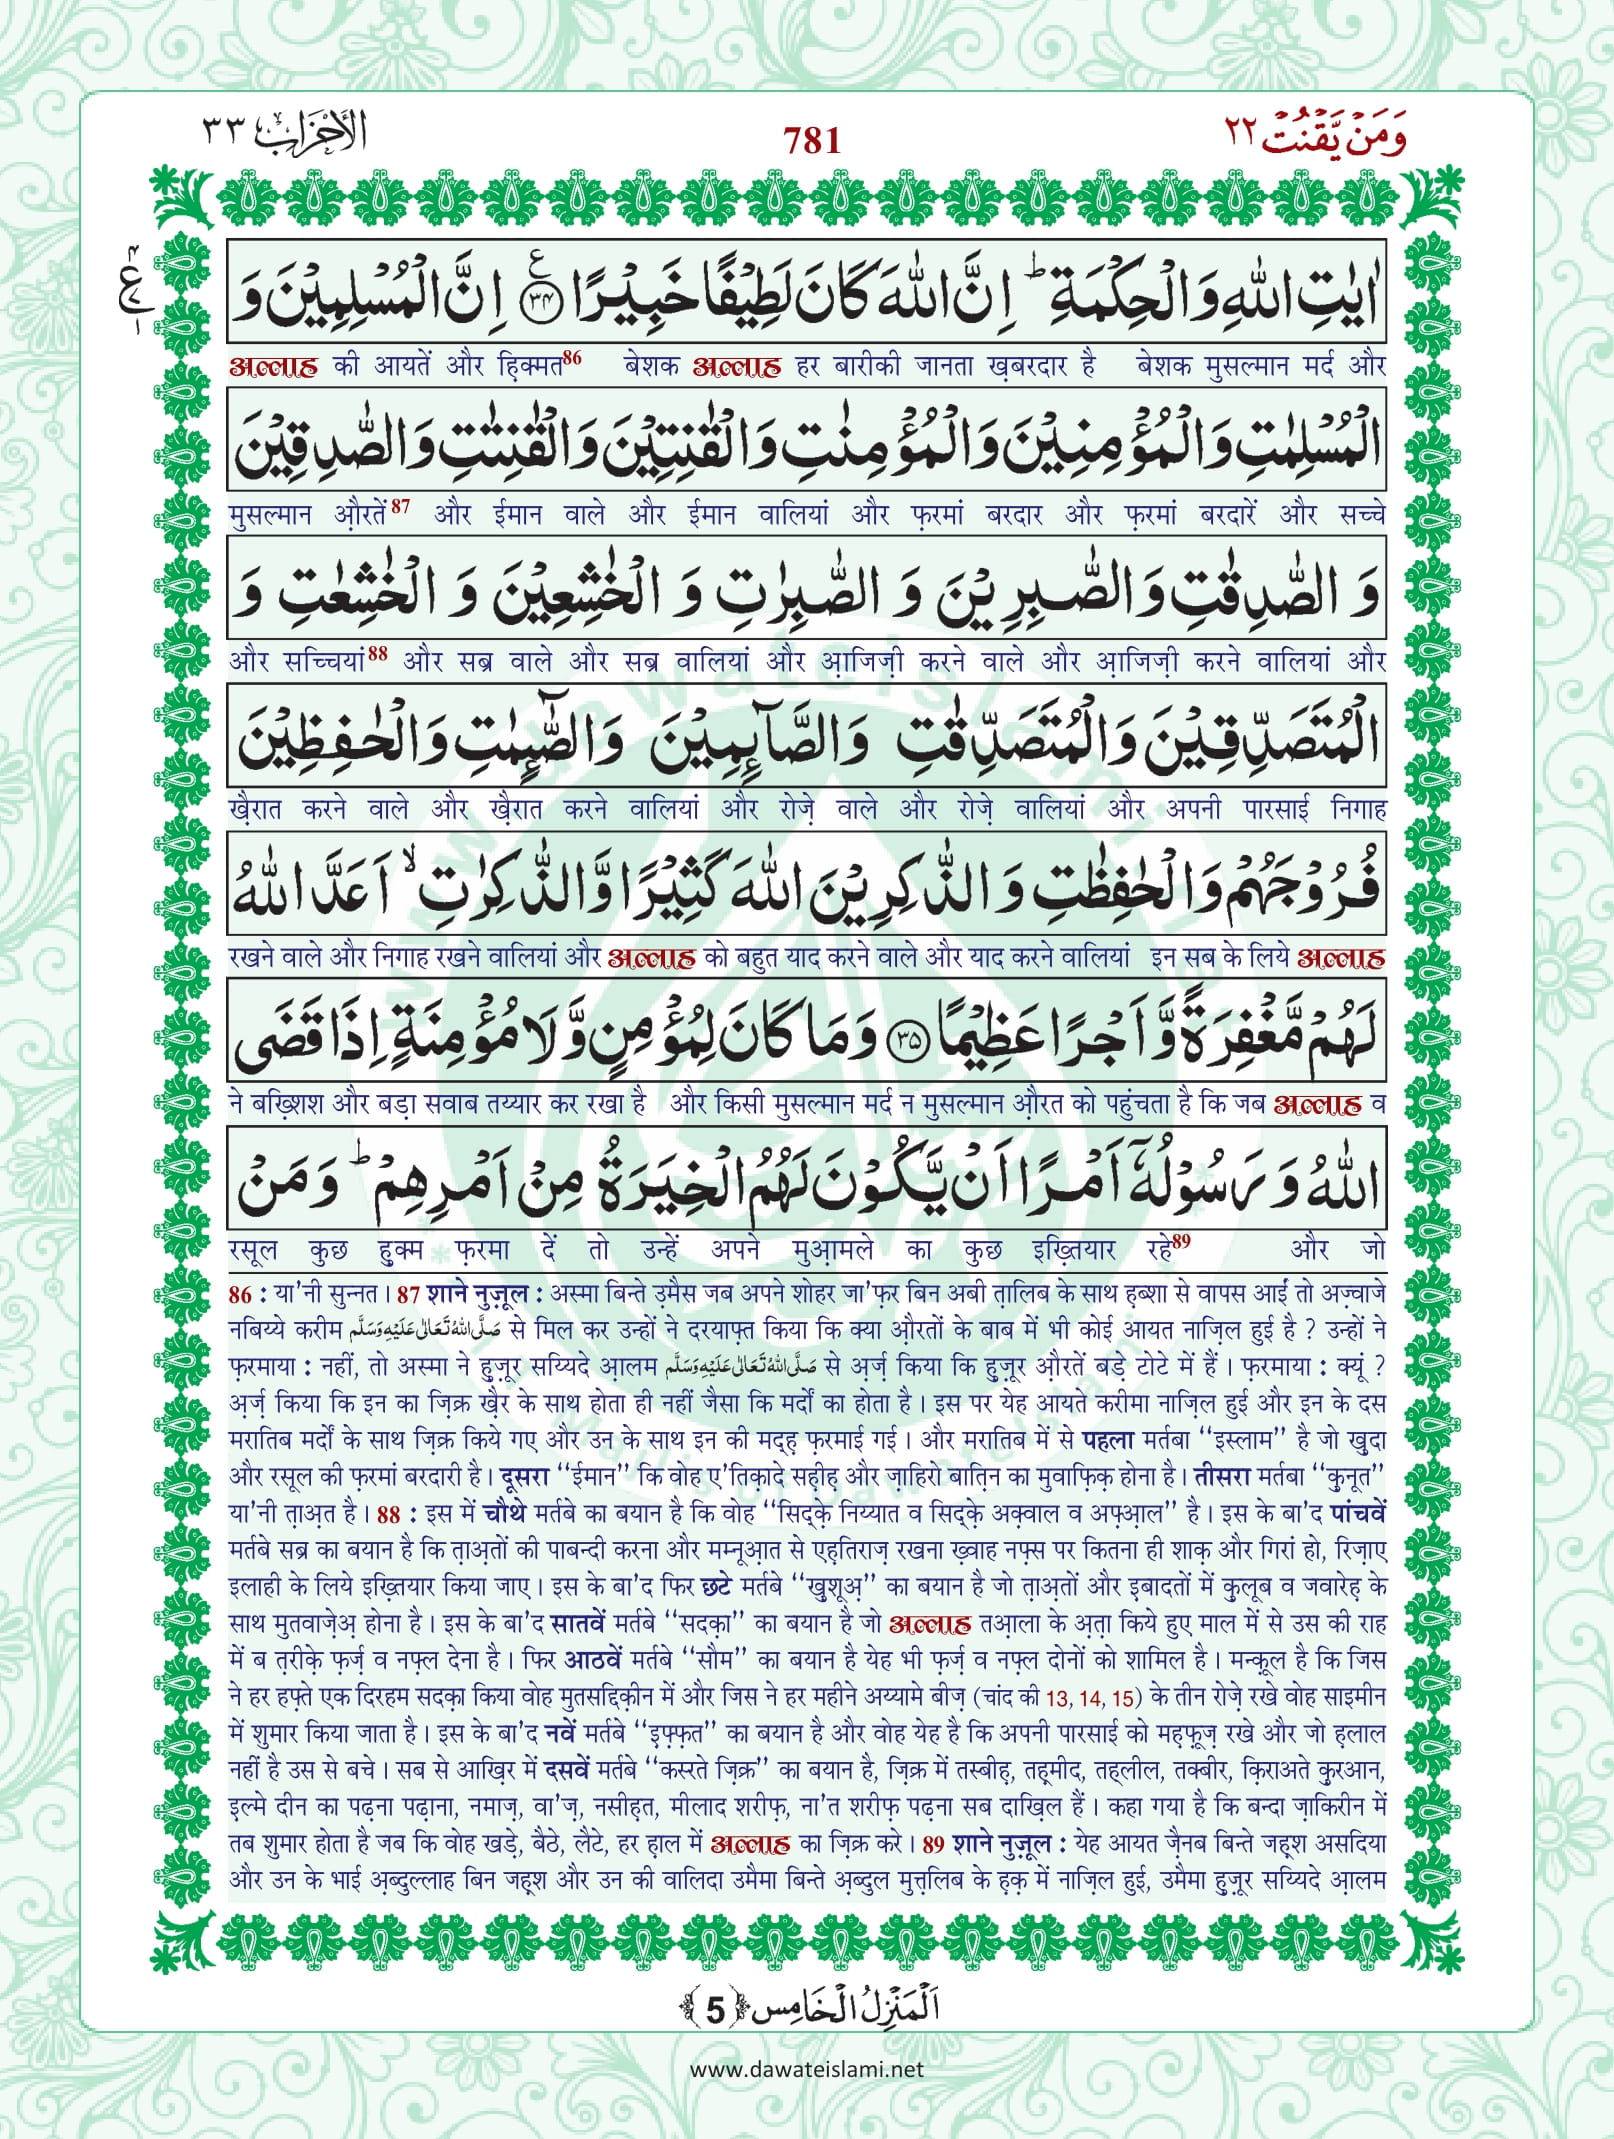 وَمَنْ يَّقْنُتْ ٢٢
781
الْاَحْزَاب ٣٣
اٰیٰتِ اللّٰهِ وَالْحِكْمَةِ ؕ اِنَّ اللّٰهَ كَانَ لَطِیْفًا خَبِیْرًا ﴿۳۴﴾ اِنَّ الْمُسْلِمِیْنَ وَ
अल्लाह की आयतें और हि़क्मत86 बेशक अल्लाह हर बारीकी जानता ख़बरदार है बेशक मुसल्मान मर्द और
الْمُسْلِمٰتِ وَالْمُؤْمِنِیْنَ وَالْمُؤْمِنٰتِ وَالْقٰنِتِیْنَ وَالْقٰنِتٰتِ وَالصّٰدِقِیْنَ
मुसल्मान औ़रतें87 और ईमान वाले और ईमान वालियां और फ़रमां बरदार और फ़रमां बरदारें और सच्चे
وَ الصّٰدِقٰتِ وَالصّٰبِرِیْنَ وَ الصّٰبِرٰتِ وَ الْخٰشِعِیْنَ وَ الْخٰشِعٰتِ وَ
और सच्चियां88 और सब्र वाले और सब्र वालियां और आ़जिज़ी करने वाले और आ़जिज़ी करने वालियां और
الْمُتَصَدِّقِیْنَ وَالْمُتَصَدِّقٰتِ وَالصَّآىِٕمِیْنَ وَالصّٰٓىِٕمٰتِ وَالْحٰفِظِیْنَ
ख़ैरात करने वाले और ख़ैरात करने वालियां और रोज़े वाले और रोज़े वालियां और अपनी पारसाई निगाह
فُرُوْجَهُمْ وَالْحٰفِظٰتِ وَ الذّٰكِرِیْنَ اللّٰهَ كَثِیْرًا وَّالذّٰكِرٰتِ ۙ اَعَدَّ اللّٰهُ
रखने वाले और निगाह रखने वालियां और अल्लाह को बहुत याद करने वाले और याद करने वालियां इन सब के लिये अल्लाह
لَهُمْ مَّغْفِرَةً وَّ اَجْرًا عَظِیْمًا ﴿۳۵﴾ وَمَا كَانَ لِمُؤْمِنٍ وَّلَا مُؤْمِنَةٍ اِذَا قَضَى
ने बख़्शिश और बड़ा सवाब तय्यार कर रखा है और किसी मुसल्मान मर्द न मुसल्मान औ़रत को पहुंचता है कि जब अल्लाह व
اللّٰهُ وَ رَسُوْلُهٗۤ اَمْرًا اَنْ یَّكُوْنَ لَهُمُ الْخِیَرَةُ مِنْ اَمْرِهِمْ ؕ وَمَنْ
रसूल कुछ हु़क्म फ़रमा दें तो उन्हें अपने मुआ़मले का कुछ इख़्तियार रहे89 और जो
86 : या'नी सुन्नत। 87 शाने नुज़ूल : अस्मा बिन्ते उ़मैस जब अपने शोहर जा'फ़र बिन अबी त़ालिब के साथ ह़ब्शा से वापस आईं तो अज़्वाजे
नबिय्ये करीम صَلَّى اللّٰهُ تَعَالٰى عَلَيْهِ وَسَلَّم से मिल कर उन्हों ने दरयाफ़्त किया कि क्या औ़रतों के बाब में भी कोई आयत नाज़िल हुई है ? उन्हों ने
फ़रमाया : नहीं, तो अस्मा ने हु़ज़ूर सय्यिदे आ़लम صَلَّى اللّٰهُ تَعَالٰى عَلَيْهِ وَسَلَّم से अ़र्ज़ किया कि हु़ज़ूर औ़रतें बड़े टोटे में हैं। फ़रमाया : क्यूं ?
अ़र्ज़ किया कि इन का ज़िक्र ख़ैर के साथ होता ही नहीं जैसा कि मर्दों का होता है। इस पर येह आयते करीमा नाज़िल हुई और इन के दस
मरातिब मर्दों के साथ ज़िक्र किये गए और उन के साथ इन की मद्ह़ फ़रमाई गई। और मरातिब में से पहला मर्तबा ‘‘इस्लाम’’ है जो ख़ुदा
और रसूल की फ़रमां बरदारी है। दूसरा ‘‘ईमान’’ कि वोह ए'तिक़ादे सह़ीह़ और ज़ाहिरो बात़िन का मुवाफ़िक़ होना है। तीसरा मर्तबा ‘‘क़ुनूत’’
या'नी त़ाअ़त है। 88 : इस में चौथे मर्तबे का बयान है कि वोह ‘‘सिद्क़े निय्यात व सिद्क़े अक़्वाल व अफ़्आ़ल’’ है। इस के बा'द पांचवें
मर्तबे सब्र का बयान है कि त़ाअ़तों की पाबन्दी करना और मम्नूआ़त से एह़तिराज़ रखना ख़्वाह नफ़्स पर कितना ही शाक़ और गिरां हो, रिज़ाए
इलाही के लिये इख़्तियार किया जाए। इस के बा'द फिर छटे मर्तबे ‘‘ख़ुशूअ़’’ का बयान है जो त़ाअ़तों और इ़बादतों में क़ुलूब व जवारेह़ के
साथ मुतवाज़ेअ़ होना है। इस के बा'द सातवें मर्तबे ‘‘सदक़ा’’ का बयान है जो अल्लाह तआ़ला के अ़त़ा किये हुए माल में से उस की राह
में ब त़रीक़े फ़र्ज़ व नफ़्ल देना है। फिर आठवें मर्तबे ‘‘सौम’’ का बयान है येह भी फ़र्ज़ व नफ़्ल दोनों को शामिल है। मन्क़ूल है कि जिस
ने हर हफ़्ते एक दिरहम सदक़ा किया वोह मुतसद्दिक़ीन में और जिस ने हर महीने अय्यामे बीज़ (चांद की 13, 14, 15) के तीन रोज़े रखे वोह साइमीन
में शुमार किया जाता है। इस के बा'द नवें मर्तबे ‘‘इ़फ़्फ़त’’ का बयान है और वोह येह है कि अपनी पारसाई को मह़फ़ूज़ रखे और जो ह़लाल
नहीं है उस से बचे। सब से आख़िर में दसवें मर्तबे ‘‘कस्रते ज़िक्र’’ का बयान है, ज़िक्र में तस्बीह़, तह़्मीद, तह्लील, तक्बीर, क़िराअते क़ुरआन,
इ़ल्मे दीन का पढ़ना पढ़ाना, नमाज़, वा'ज़, नसीह़त, मीलाद शरीफ़, ना'त शरीफ़ पढ़ना सब दाख़िल हैं। कहा गया है कि बन्दा ज़ाकिरीन में
तब शुमार होता है जब कि वोह खड़े, बैठे, लैटे, हर ह़ाल में अल्लाह का ज़िक्र करे। 89 शाने नुज़ूल : येह आयत ज़ैनब बिन्ते जह़्श असदिया
और उन के भाई अ़ब्दुल्लाह बिन जह़्श और उन की वालिदा उमैमा बिन्ते अ़ब्दुल मुत्त़लिब के ह़क़ में नाज़िल हुई, उमैमा हु़ज़ूर सय्यिदे आ़लम
اَلْمَنْزِلُ الْخَامِس ﴿5﴾
www.dawateislami.net